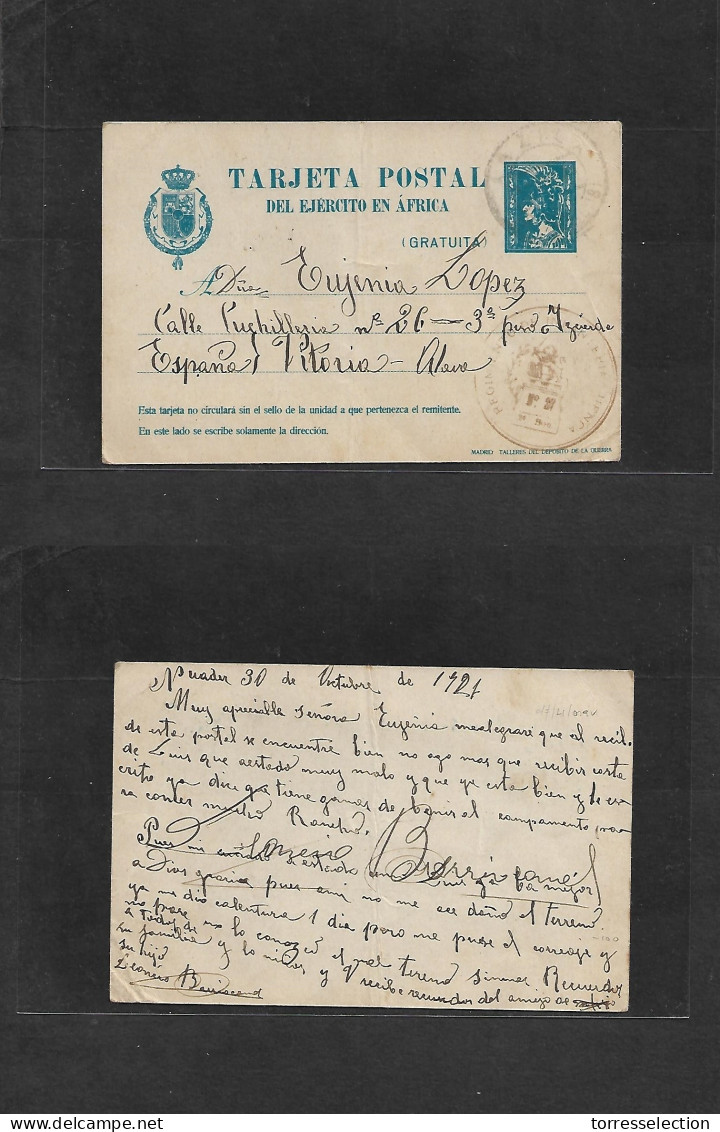 TARJETA POSTAL
DEL EJÉRCITO EN ÁFRICA
(GRATUITA)
A Dña Eugenia Lopez
Calle Cuchilleria nº 26 – 3º
España Vitoria – Alava
Esta tarjeta no circulará sin el sello de la unidad a que pertenezca el remitente.
En este lado se escribe solamente la dirección.
MADRID TALLERES DEL DEPOSITO DE LA GUERRA
30 de Octubre de 1921
Muy apreciable señora Eugenia mealegrare que al recil-
de esta portal se encuentre bien no ago mas que recibir carta
de Luis que aestado muy malo y que ya esta bien y le es
crito ya dice que tiene ganas de benir al campamento paa
ra comer mucho Rancho.
Pues mi a estado Luis ya ba mejor
a Dios gracia pues ami no me ace daño el terreno.
ya me dio calentura 1 dia pero me puse el correaje y
no pase no lo conozco el mal terreno Recuerdos
a todos de
su familia y lo niños y recibe recuerdos del amigo de
su hijo
delcampe.net
torresselection